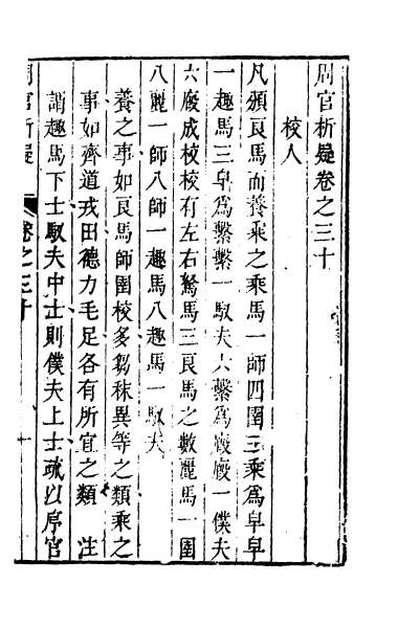 周官析疑卷之三十
校人
凡頒良馬而養乘之乘馬一師四圉三乘爲皁皁
一趣馬三皁爲繫繫一馭夫六繫爲廏廏一僕夫
六廏成校校有左右駑馬三良馬之數麗馬一圉
八麗一師八師一趣馬八趣馬一馭夫
養之事如良馬師圉校多芻秣異等之類乘之
事如齊道戎田德力毛足各有所宜之類 注
謂趣馬下士馭夫中士則僕夫上士疏以序官
周官析疑
卷之三十
一